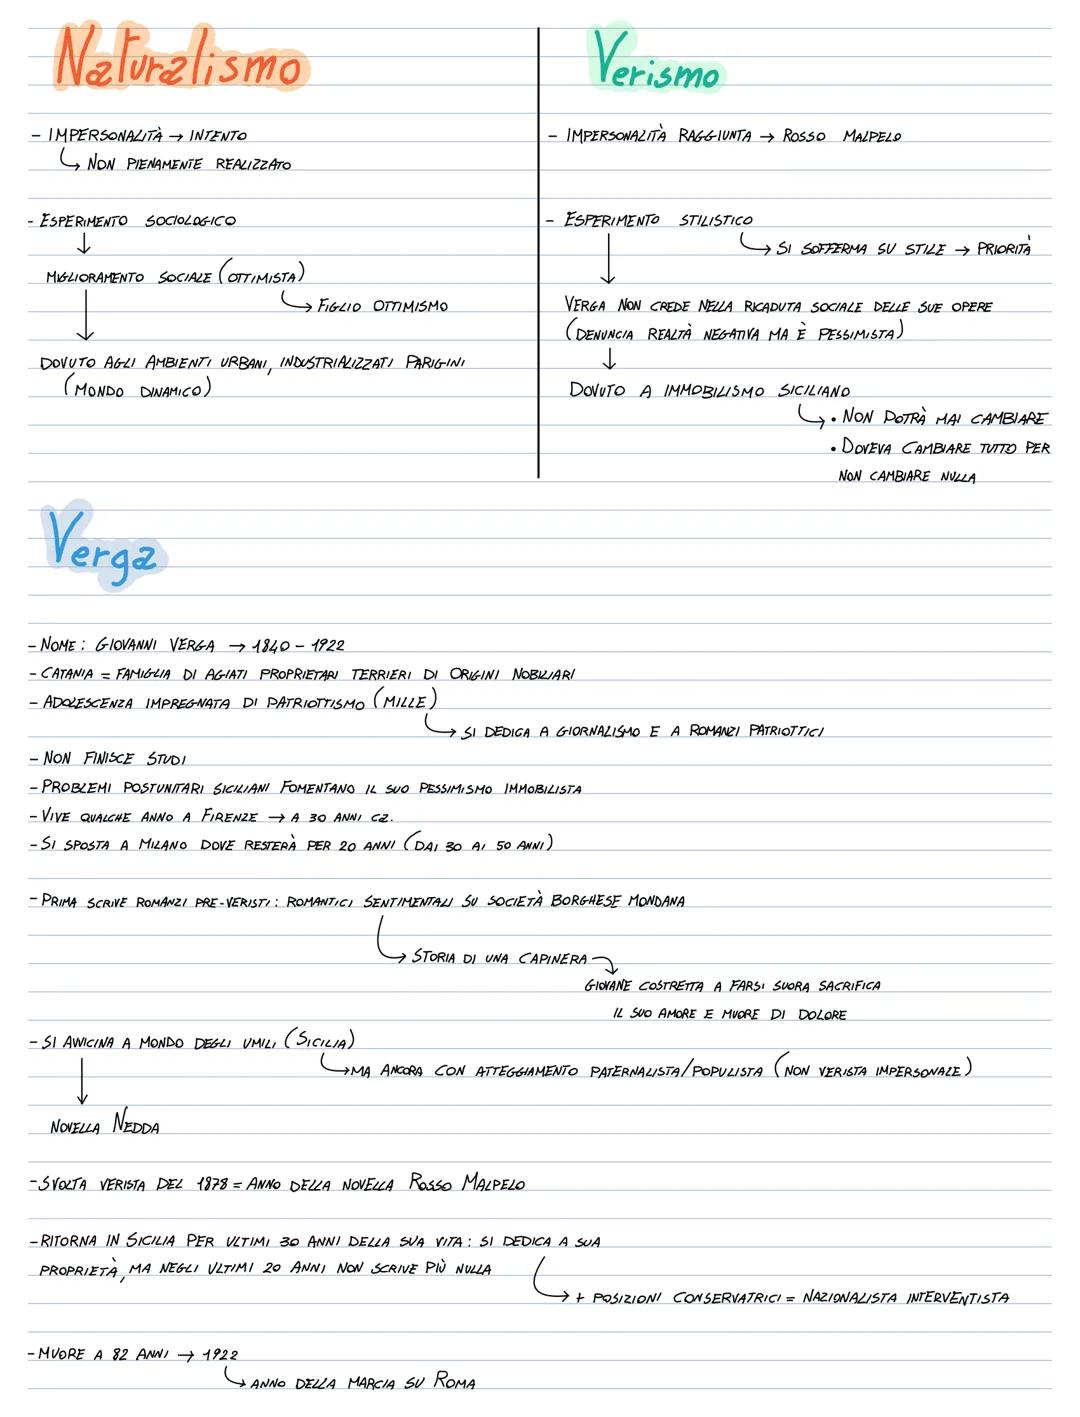 Naturalismo
- IMPERSONALITÀ → INTENTO
↳ NON PIENAMENTE REALIZZATO
- ESPERIMENTO SOCIOLOGICO
↓
MIGLIORAMENTO SOCIALE (OTTIMISTA)
↳ FIGLIO OTTIMISMO
↓
DOVUTO AGLI AMBIENTI URBANI, INDUSTRIALIZZATI PARIGINI
(MONDO DINAMICO)
Verismo
- IMPERSONALITÀ RAGGIUNTA → ROSSO MALPELO
- ESPERIMENTO STILISTICO
↳ SI SOFFERMA SU STILE → PRIORITÀ
↓
VERGA NON CREDE NELLA RICADUTA SOCIALE DELLE SUE OPERE
(DENUNCIA REALTÀ NEGATIVA MA È PESSIMISTA)
↓
DOVUTO A IMMOBILISMO SICILIANO
↳ • NON POTRÀ MAI CAMBIARE
• DOVEVA CAMBIARE TUTTO PER
NON CAMBIARE NULLA
Verga
- NOME: GIOVANNI VERGA → 1840 - 1922
- CATANIA = FAMIGLIA DI AGIATI PROPRIETARI TERRIERI DI ORIGINI NOBILIARI
- ADOLESCENZA IMPREGNATA DI PATRIOTTISMO (MILLE)
↳ SI DEDICA A GIORNALISMO E A ROMANZI PATRIOTTICI
- NON FINISCE STUDI
- PROBLEMI POSTUNITARI SICILIANI FOMENTANO IL SUO PESSIMISMO IMMOBILISTA
- VIVE QUALCHE ANNO A FIRENZE → A 30 ANNI CA.
- SI SPOSTA A MILANO DOVE RESTERÀ PER 20 ANNI (DAI 30 AI 50 ANNI)
- PRIMA SCRIVE ROMANZI PRE-VERISTI: ROMANTICI SENTIMENTALI SU SOCIETÀ BORGHESE MONDANA
↳ STORIA DI UNA CAPINERA
GIOVANE COSTRETTA A FARSI SUORA SACRIFICA
IL SUO AMORE E MUORE DI DOLORE
- SI AVVICINA A MONDO DEGLI UMILI (SICILIA)
↳ MA ANCORA CON ATTEGGIAMENTO PATERNALISTA/POPULISTA (NON VERISTA IMPERSONALE)
↓
NOVELLA NEDDA
- SVOLTA VERISTA DEL 1878 = ANNO DELLA NOVELLA ROSSO MALPELO
- RITORNA IN SICILIA PER ULTIMI 30 ANNI DELLA SUA VITA: SI DEDICA A SUA
PROPRIETÀ, MA NEGLI ULTIMI 20 ANNI NON SCRIVE PIÙ NULLA
↳ + POSIZIONI CONSERVATRICI = NAZIONALISTA INTERVENTISTA
- MUORE A 82 ANNI → 1922
↳ ANNO DELLA MARCIA SU ROMA